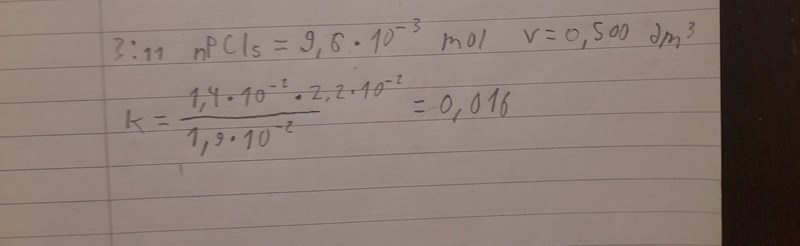 3:11 nPCl₅ = 9,6 · 10⁻³ mol v = 0,500 dm³
k = (1,4 · 10⁻² · 2,2 · 10⁻²) / (1,9 · 10⁻²) = 0,016